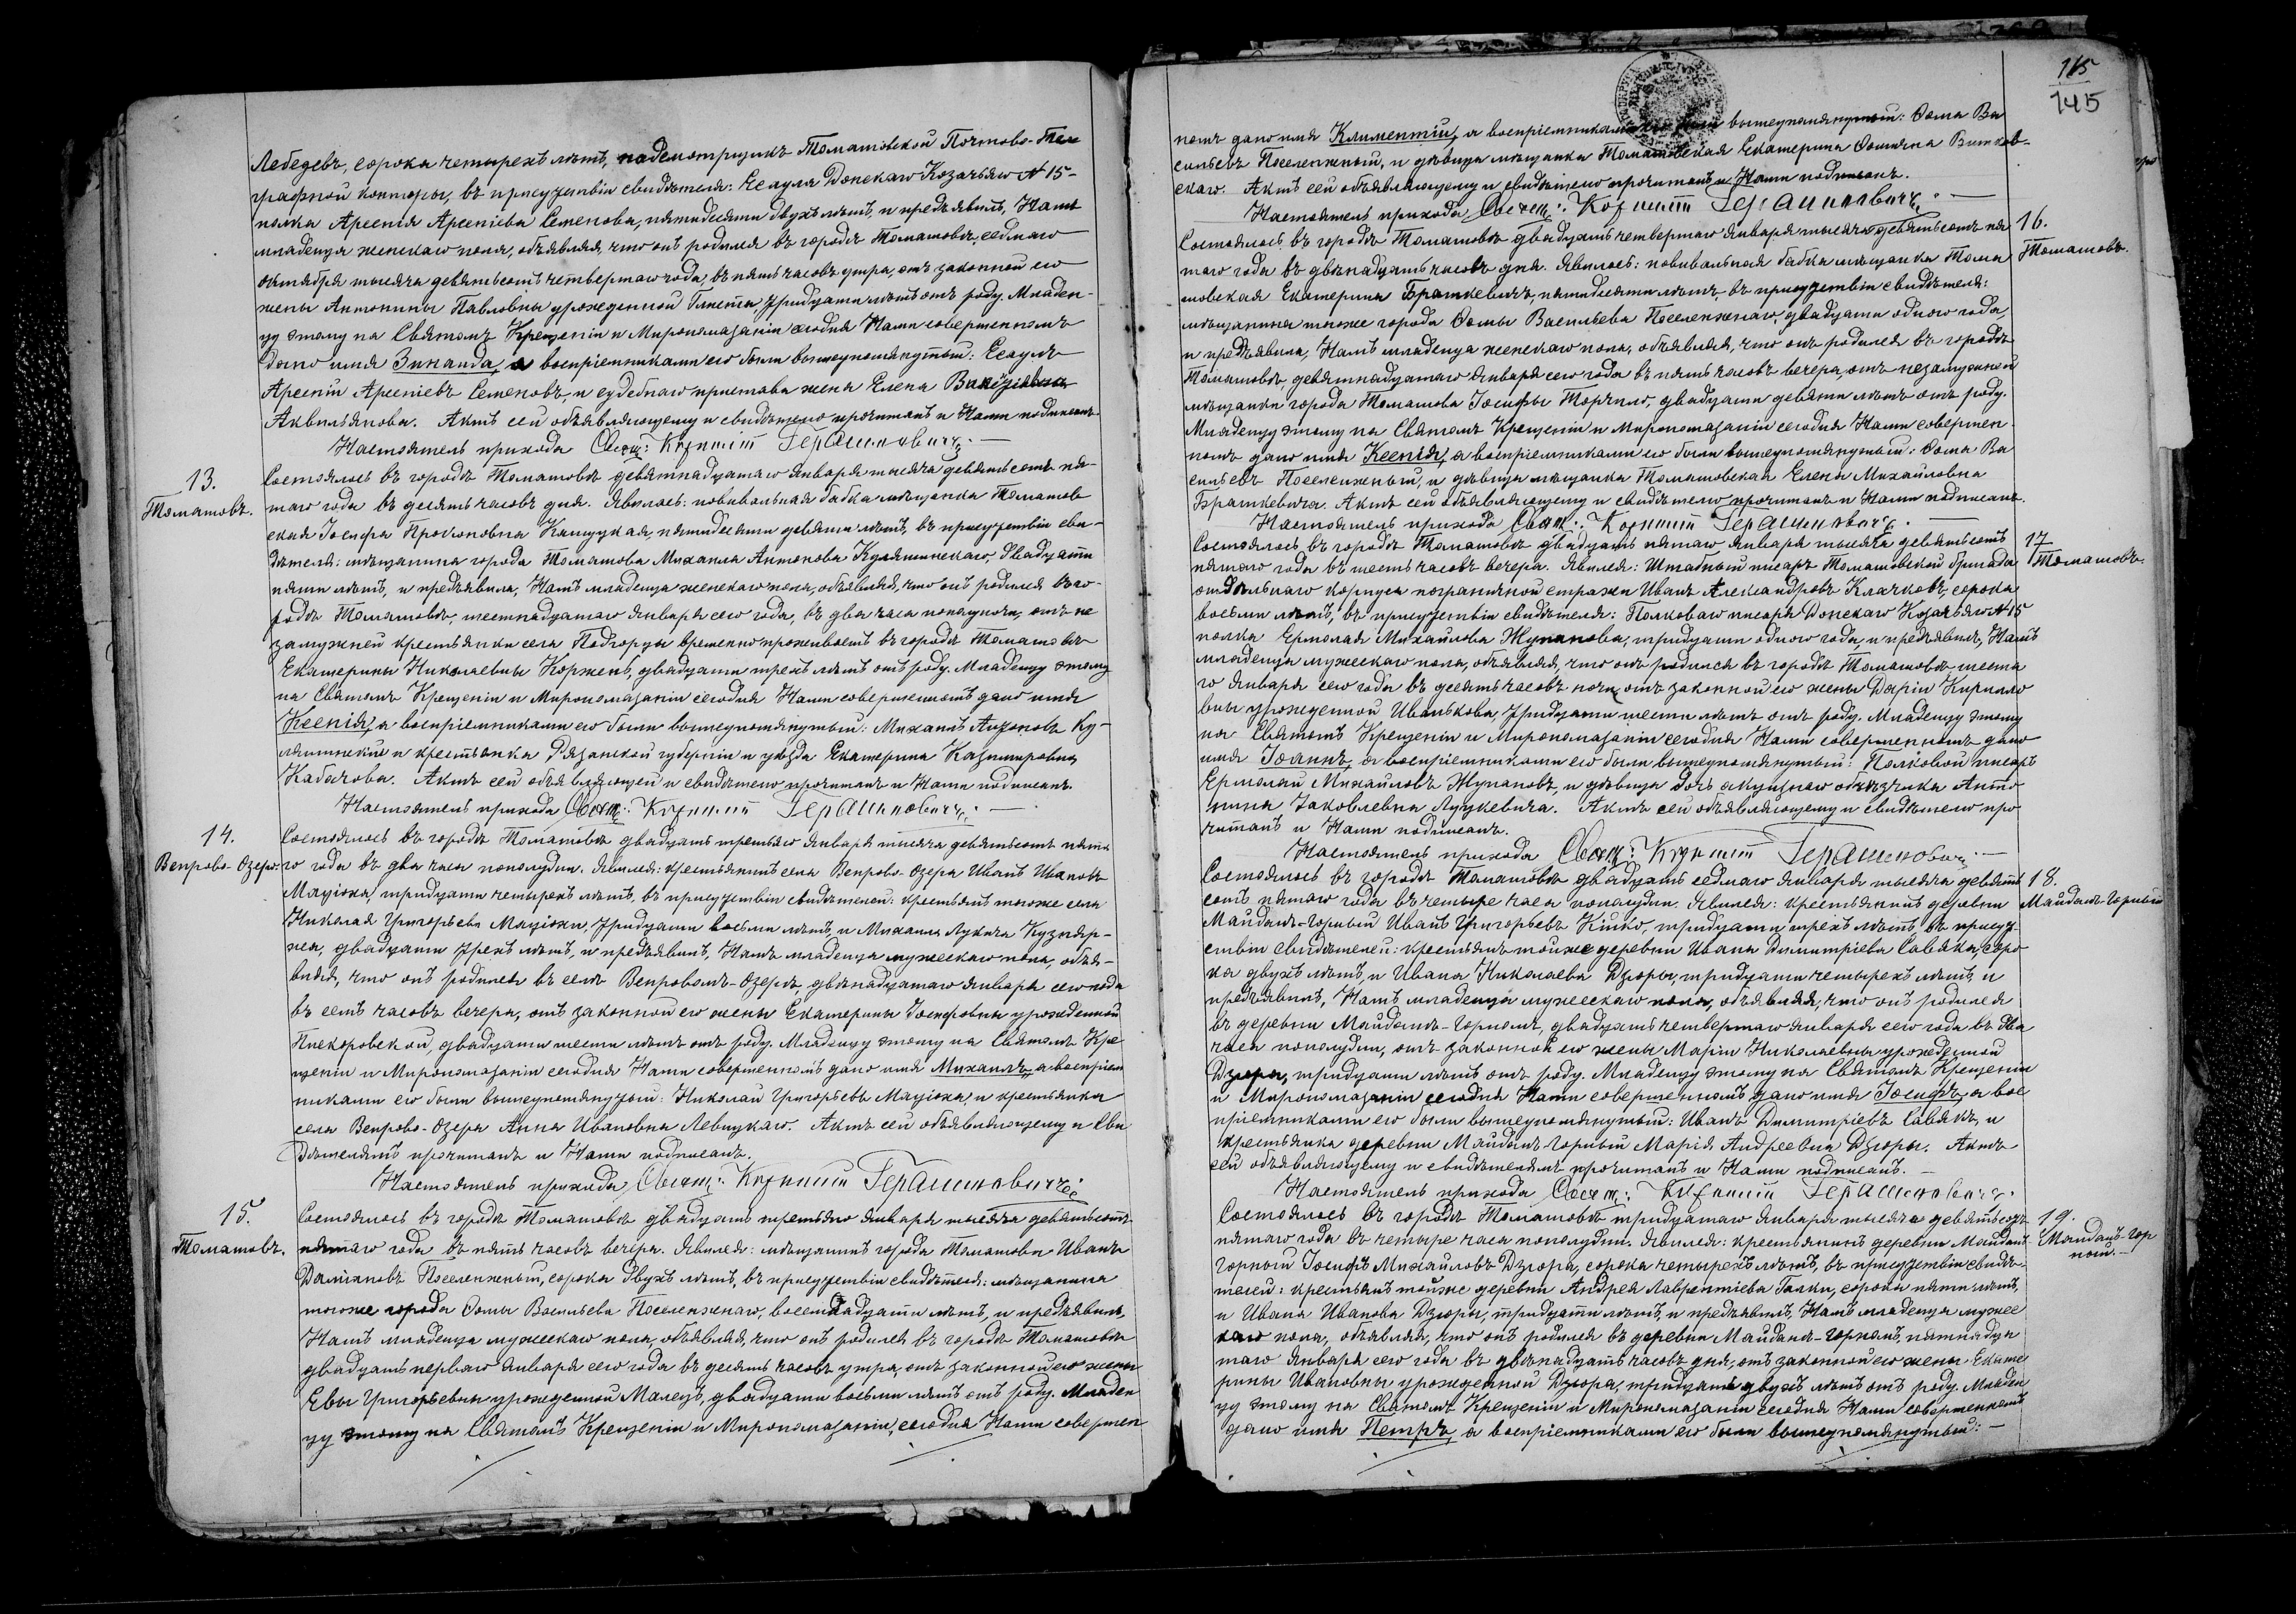 Лебедевъ, сорока четырехъ лѣтъ, надсмотрщикъ Томашовской Почтово-Теле
графной конторы, въ присутствіи свидѣтеля: Есаула Донскаго Козачьяго № 15-
полка Арсенія Арсеніева Семенова, пятидесяти двухъ лѣтъ, и предъявилъ, Намъ
младенца женскаго пола, объявляя, что онъ родился въ городѣ Томашовѣ, седмаго
октября тысяча девятьсотъ четвертаго года, въ пять часовъ утра, отъ законной его
жены Антонины Павловны урожденной тридцати лѣтъ отъ роду. Младен-
цу этому на Святомъ Крещеніи и Миропомазаніи сегодня Нами совершенномъ
дано имя Зинаида, а воспріемниками его были вышеупомянутый: Есаулъ
Арсеній Арсеніевъ Семеновъ, и судебнаго пристава жена Елена
Аквильянова. Актъ сей объявляющему и свидѣтелю прочитанъ и Нами подписанъ.
Настоятель прихода Свящ: Корнилій Герашиновичъ. —
13.
Томашовъ.
Состоялось въ городѣ Томашовѣ девятнадцатаго Января тысяча девятьсотъ пя-
таго года въ десять часовъ дня. Явилась: повивальная бабка мѣщанка Томашов
ская Іосифа Прокоповна Кашуцкая, пятидесяти девяти лѣтъ, въ присутствіи сви-
дѣтеля: мѣщанина города Томашова Михаила Антонова Кулятинскаго, двадцати
пяти лѣтъ, и предъявила, Намъ младенца женскаго пола, объявляя, что онъ родился въ го-
родѣ Томашовѣ, шестнадцатаго Января сего года, въ два часа пополуночи, отъ не
замужней крестьянки села Подгорцы временно проживаетъ въ городѣ Томашовѣ
Екатерины Николаевны Коржень, двадцати трехъ лѣтъ отъ роду. Младенцу этому
на Святомъ Крещеніи и Миропомазаніи сегодня Нами совершенномъ дано имя
Ксенія, а воспріемниками его были вышеупомянутый: Михаилъ Антоновъ Ку-
лятинскій и крестьянка Рязанской губерніи и уѣзда Екатерина Казимировна
Кабачова. Актъ сей объявляющей и свидѣтелю прочитанъ и Нами подписанъ.
Настоятель прихода Свящ: Корнилій Герашиновичъ. —
14.
Вепрово-Озеро.
Состоялось въ городѣ Томашовѣ двадцать третьяго Января тысяча девятьсотъ пята
го года въ два часа пополудни. Явился: крестьянинъ села Вепрово-Озера Иванъ Ивановъ
Маціоха, тридцати четырехъ лѣтъ, въ присутствіи свидѣтелей: крестьянъ тоже села
Николая Григорьева Маціохи, тридцати восьми лѣтъ, и Михаила Лукича Кузняр-
ча, двадцати трехъ лѣтъ, и предъявилъ, Намъ младенца мужескаго пола, объя-
вляя, что онъ родился въ селѣ Вепровомъ-Озерѣ, двѣнадцатаго Января сего года
въ семь часовъ вечера, отъ законной его жены Екатерины Іосифовны урожденной
Пискоровской, двадцати шести лѣтъ отъ роду. Младенцу этому на Святомъ Кре
щеніи и Миропомазаніи сегодня Нами совершенномъ дано имя Михаилъ, а воспріем
никами его были вышеупомянутый: Николай Григорьевъ Маціоха, и крестьянка
села Вепрово-Озера Анна Ивановна Левицкаго. Актъ сей объявляющему и сви
дѣтелямъ прочитанъ и Нами подписанъ.
Настоятель прихода Свящ: Корнилій Герашиновичъ.
15.
Томашовъ.
Состоялось въ городѣ Томашовѣ двадцать третьяго Января тысяча девятьсотъ
пятаго года въ пять часовъ вечера. Явился: мѣщанинъ города Томашова Иванъ
Даміановъ Поселенжный, сорока двухъ лѣтъ, въ присутствіи свидѣтеля: мѣщанина
тогоже города Ѳомы Васильева Поселенжнаго, восемнадцати лѣтъ, и предъявилъ,
Намъ младенца мужескаго пола, объявляя, что онъ родился въ городѣ Томашовѣ
двадцать перваго Января сего года въ десять часовъ утра, отъ законной его жены
Евы Григорьевны урожденной Малецъ, двадцати восьми лѣтъ отъ роду. Младен
цу этому на Святомъ Крещеніи и Миропомазаніи, сегодня Нами совершен
115
145
номъ дано имя Климентій, а воспріемниками его были вышеупомянутый: Ѳома Ва
сильевъ Поселенжный, и дѣвица мѣщанка Томашовская Екатерина Ѳомина Витков-
скаго. Актъ сей объявляющему и свидѣтелю прочитанъ и Нами подписанъ.
Настоятель прихода Свящ: Корнилій Герашиновичъ. —
16.
Томашовъ.
Состоялось въ городѣ Томашовѣ двадцать четвертаго Января тысяча девятьсотъ пя
таго года въ двѣнадцать часовъ дня. Явилась: повивальная бабка мѣщанка Тома
шовская Екатерина Браткевичъ, пятидесяти лѣтъ, въ присутствіи свидѣтеля:
мѣщанина тогоже города Ѳомы Васильева Поселенжнаго, двадцати одного года,
и предъявила, Намъ младенца женскаго пола, объявляя, что онъ родился въ городѣ
Томашовѣ, девятнадцатаго Января сего года въ пять часовъ вечера, отъ незамужней
мѣщанки города Томашова Іосифы Торчило, двадцати девяти лѣтъ отъ роду.
Младенцу этому на Святомъ Крещеніи и Миропомазаніи сегодня Нами совершен
номъ дано имя Ксенія, а воспріемниками его были вышеупомянутый: Ѳома Ва
сильевъ Поселенжный, и дѣвица мѣщанка Томашовская Елена Михайловна
Браткевича. Актъ сей объявляющему и свидѣтелю прочитанъ и Нами подписанъ.
Настоятель прихода Свящ: Корнилій Герашиновичъ. —
17
Томашовъ.
Состоялось въ городѣ Томашовѣ двадцать пятаго Января тысяча девятьсотъ
пятаго года въ шесть часовъ вечера. Явился: Штабный писарь Томашовской бригады
отдѣльнаго корпуса пограничной стражи Иванъ Александровъ Клачковъ, сорока
восьми лѣтъ, въ присутствіи свидѣтеля: Полковаго писаря Донскаго Козачьяго № 15
полка Ермолая Михайлова Жупанова, тридцати одного года, и предъявилъ, Намъ
младенца мужескаго пола, объявляя, что онъ родился въ городѣ Томашовѣ шеста
го Января сего года въ десять часовъ ночи, отъ законной его жены Даріи Кирилло
вны урожденной Иванькова, тридцати шести лѣтъ отъ роду. Младенцу этому
на Святомъ Крещеніи и Миропомазаніи сегодня Нами совершенномъ дано
имя Іоаннъ, а воспріемниками его были вышеупомянутый: Полковой писарь
Ермолай Михайловъ Жупановъ, и дѣвица дочь акцизнаго объѣздчика Анто
нина Іаковлевна Луцкевича. Актъ сей объявляющему и свидѣтелю про
читанъ и Нами подписанъ.
Настоятель прихода Свящ: Корнилій Герашиновичъ. —
18.
Майданъ-Горный
Состоялось въ городѣ Томашовѣ двадцать седмаго Января тысяча девять
сотъ пятаго года въ четыре часа пополудни. Явился: крестьянинъ деревни
Майданъ-Горный Иванъ Григорьевъ Кицко, тридцати трехъ лѣтъ, въ присут-
ствіи свидѣтелей: крестьянъ тойже деревни Ивана Димитріева Савяка, соро
ка двухъ лѣтъ, и Ивана Николаева Дзюры, тридцати четырехъ лѣтъ, и
предъявилъ, Намъ младенца мужескаго пола, объявляя, что онъ родился
въ деревни Майданѣ-Горномъ, двадцать четвертаго Января сего года въ два
часа пополудни, отъ законной его жены Маріи Николаевны урожденной
Дзюра, тридцати лѣтъ отъ роду. Младенцу этому на Святомъ Крещеніи
и Миропомазаніи сегодня Нами совершенномъ дано имя Іосифъ, а вос
пріемниками его были вышеупомянутый: Иванъ Димитріевъ Савякъ, и
крестьянка деревни Майданъ Горный Марія Андреевна Дзюры. Актъ
сей объявляющему и свидѣтелямъ прочитанъ и Нами подписанъ. —
Настоятель прихода Свящ: Корнилій Герашиновичъ.
19.
Майданъ-Гор
ный. —
Состоялось въ городѣ Томашовѣ тридцатаго Января тысяча девятьсотъ
пятаго года въ четыре часа пополудни. Явился: крестьянинъ деревни Майданъ-
Горный Іосифъ Михайловъ Дзюра, сорока четырехъ лѣтъ, въ присутствіи свидѣ-
телей: крестьянъ тойже деревни Андрея Лаврентіева Галки, сорока пяти лѣтъ,
и Ивана Иванова Дзюры, тридцати лѣтъ, и предъявилъ, Намъ младенца мужес
каго пола, объявляя, что онъ родился въ деревни Майданѣ-Горномъ, пятнадца
таго Января сего года въ двѣнадцать часовъ дня, отъ законной его жены Екате
рины Ивановны урожденной Дзюра, тридцати двухъ лѣтъ отъ роду. Младен
цу этому на Святомъ Крещеніи и Миропомазаніи сегодня Нами совершенномъ
дано имя Петръ, а воспріемниками его были вышеупомянутый: —